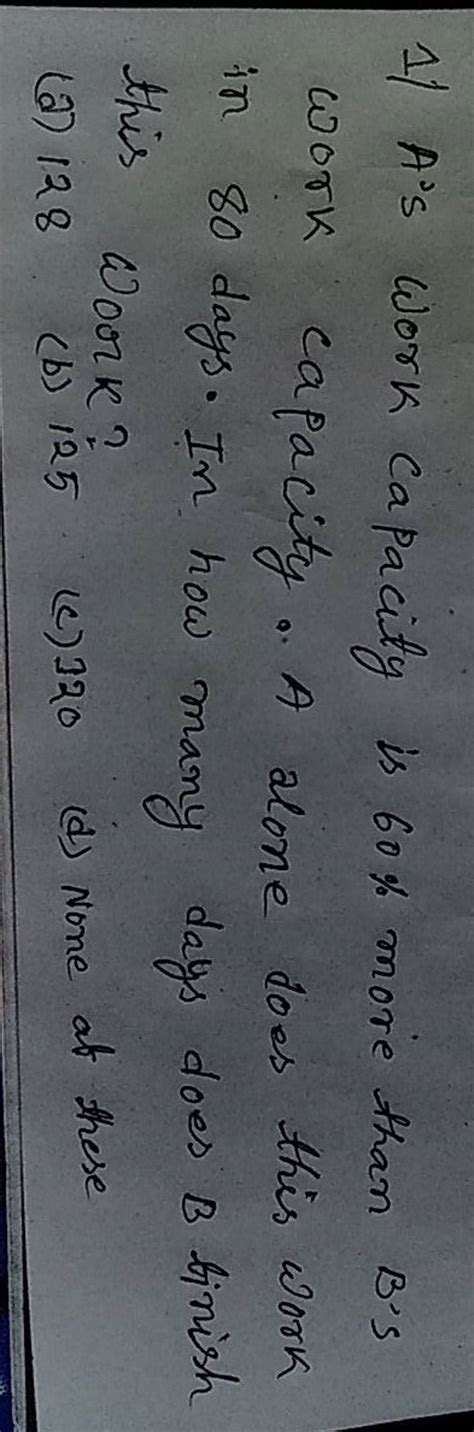 1) A's work capacity is 60% more than B's
work capacity. A alone does this work
in 80 days. In how many days does B finish
this work?
(a) 128 (b) 125 (c) 320 (d) None at these